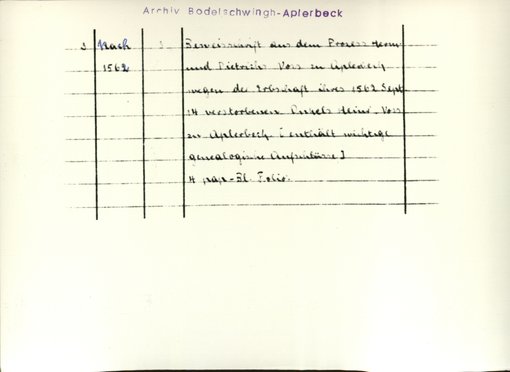 Archiv Bodelschwingh-Aplerbeck
3 Nach 3. Beweisschrift aus dem Prozess Herm.
1562 und Dietrichs Voss zu Aplerbeck
wegen der Erbschaft ihres 1562 Sept.
14 verstorbenen Onkels Heinr. Voss
zu Aplerbeck. [enthält wichtige
genealogische Aufschlüsse]
4 pap-Bl. Folio.